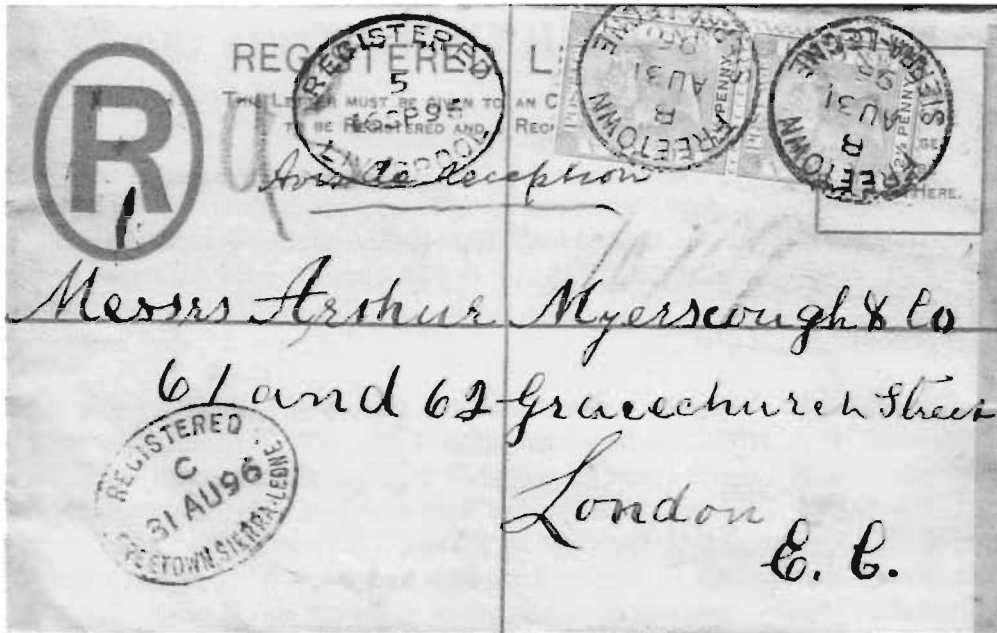 R
REGISTERED L
THIS LETTER MUST BE GIVEN TO AN
TO BE REGISTERED AND
HERE.
REGISTERED
5
16 SP 96
LIVERPOOL
FREETOWN
B
AU 31
PENNY
FREETOWN
B
AU 31
96
SIERRA-LEONE
2½ PENNY
Avis de reception
Messrs Arthur Myerscough & Co
61 and 62 Gracechurch Street
London
E. C.
REGISTERED
C
31 AU 96
FREETOWN SIERRA-LEONE